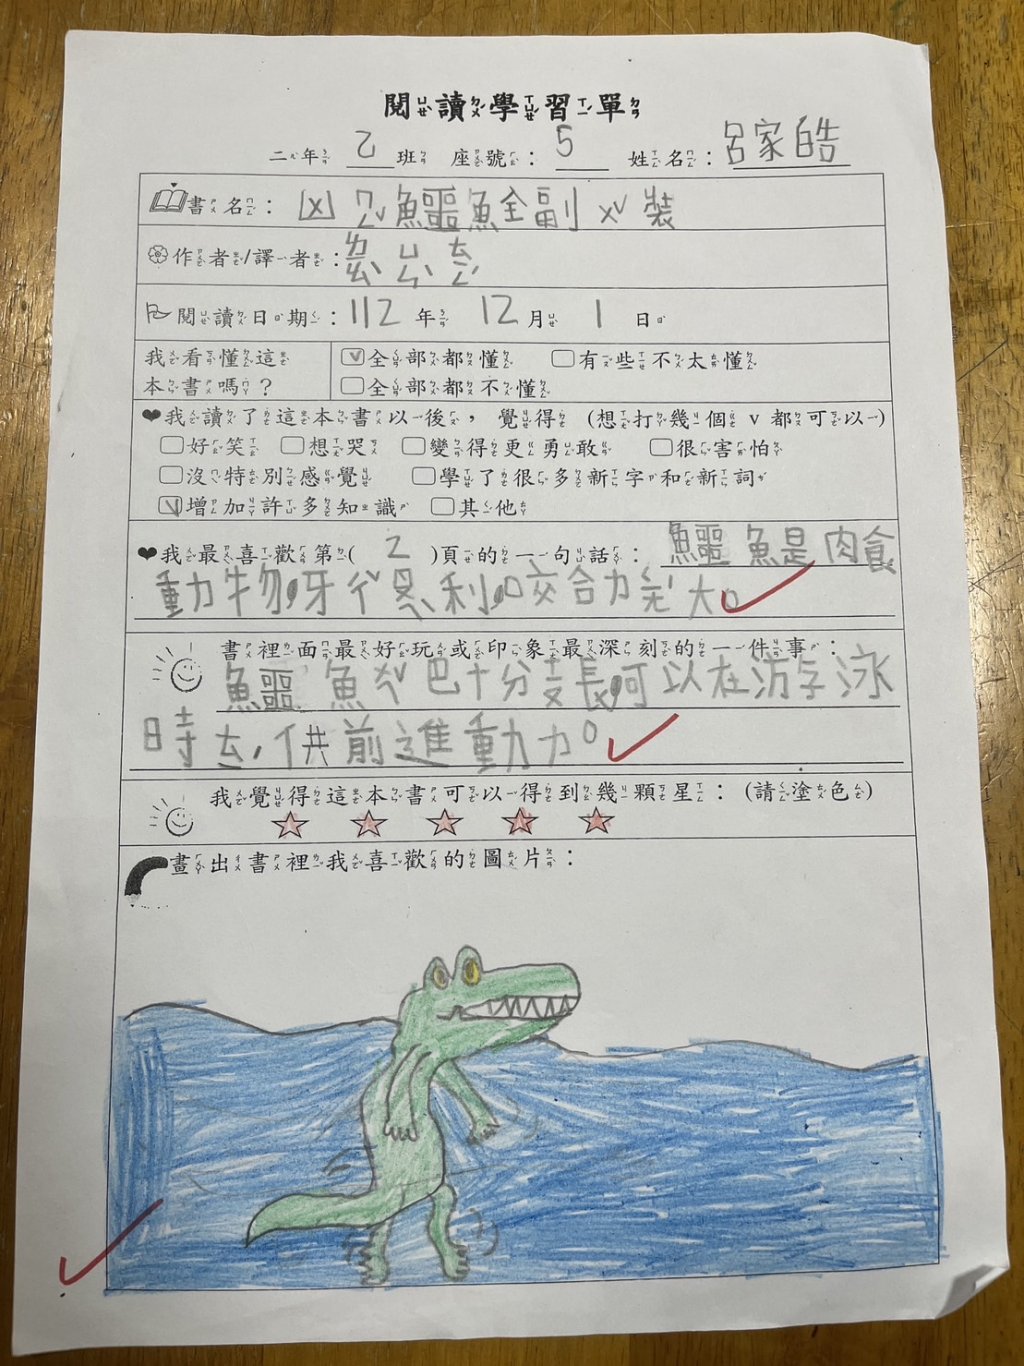 閱讀學習單
二年 乙 班 座號： 5 姓名：呂家皓
書名： 凶ㄇㄥˇ鱷魚全副ㄨˇ裝
作者/譯者：
閱讀日期： 112 年 12 月 1 日
我看懂這本書嗎？
全部都懂 有些不太懂
全部都不懂
我讀了這本書以後，覺得 (想打幾個 v 都可以)
好笑 想哭 變得更勇敢 很害怕
沒特別感覺 學了很多新字和新詞
增加許多知識 其他
我最喜歡第( 2 )頁的一句話： 鱷魚是肉食
動物，牙ㄔˇ利，咬合力大。
書裡面最好玩或印象最深刻的一件事：
鱷魚 巴十分長，可以在游泳
時ㄊㄧˊ供前進動力。
我覺得這本書可以得到幾顆星： (請塗色)
畫出書裡我喜歡的圖片：